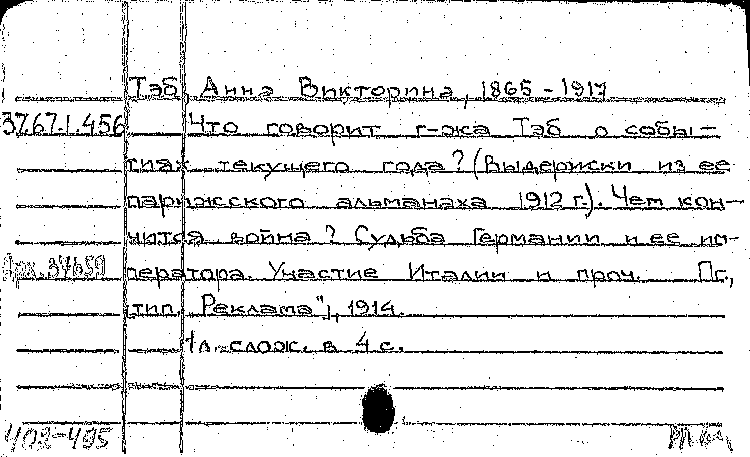 Тэб, Анна Викторина, 1865-1917
37.67.1.456 Что говорит г-жа Тэб о собы-
тиях текущего года? (Выдержки из ее
парижского альманаха 1912 г.). Чем кон-
чится война? Судьба Германии и ее им-
Арх. 34659 ператора. Участие Италии и проч. Пг.,
[тип. „Реклама"], 1914.
1 л. слож. в 4 с.
402-495